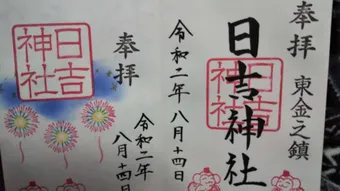 奉拝
東金之鎮
日吉神社
日吉神社
令和二年八月十四日
奉拝
日吉神社
令和二年
八月十四日